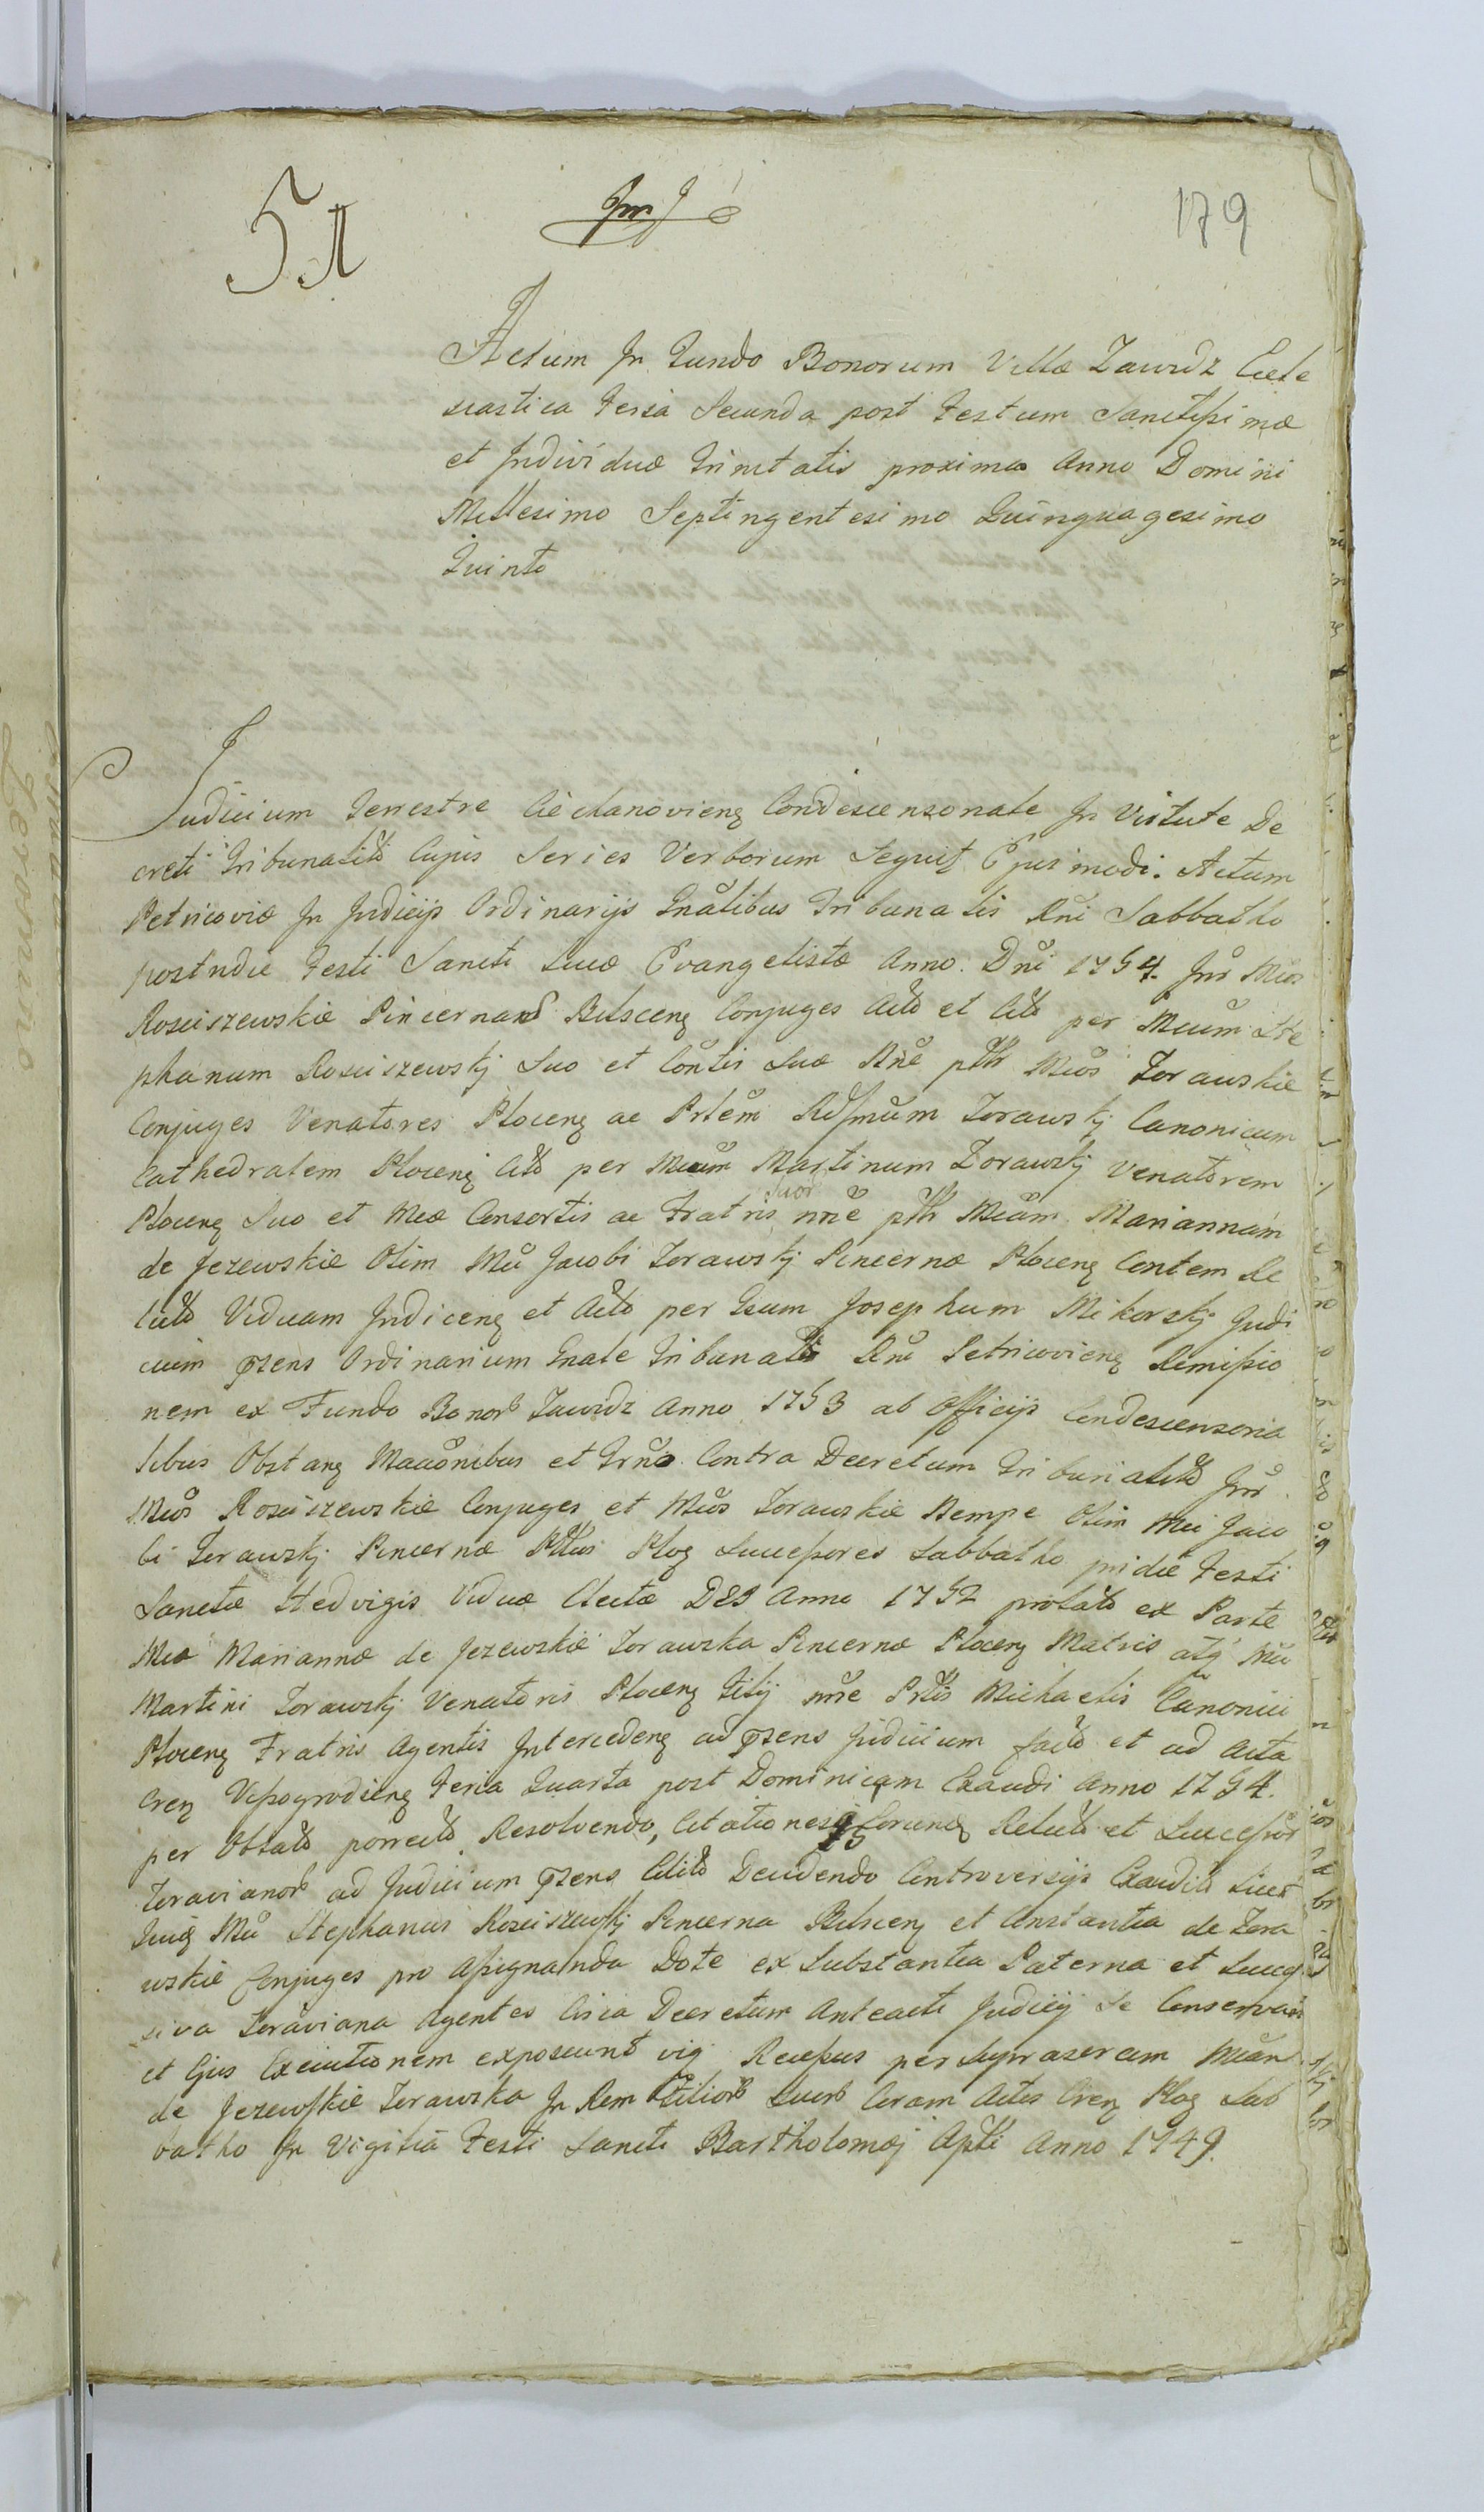 51
179
Actum In Fundo Bonorum Villæ Zawidz Eccle
siastica Feria Secunda post Festum Sanctissimæ
et Individuæ Trinitatis proxima Anno Domini
Millesimo Septingentesimo Quinquagesimo
Quinto
Judicium Terrestre Ciechanovien Condescensonale In Virtute De
creti Tribunalit Cujus Series Verborum Sequit Ejusmodi. Actum
Petricoviæ In Judicijs Ordinarijs Gnalibus Tribunalis Rni Sabbatho
postridie Festi Sancti Lucæ Evangelistæ Anno Dni 1754. Inr Mcos
Rosciszewskie Pincernas Belscen Conjuges Act et Cit per Mcum Ste
phanum Rosciszewskj Suo et Contis Suæ Nne Mcos Zorawskie
Conjuges Venatores Plocen ac Zorawskj Canonicum
Cathedralem Plocen Cit per Mcum Martinum Zorawskj Venatorem
Plocen Suo et Meæ Consortis ac Fratris Suor nne Mcam Mariannam
de Jezewskie Olim Mci Jacobi Zorawskj Pincernæ Plocen Contem Re
lict Viduam Indicen et Act per Josephum Mikorskj Judi
cium pzens Ordinarium Gnale Tribunalis Rni Petricovien Remissio
nem ex Fundo Bonor Zawidz Anno 1753 ab Officijs Condescensoria
libus Obstan et Contra Decretum Tribunalit Inr
Mcos Rosciszewskie Conjuges et Mcos Zorawskie Nempe Olim Mci Jaco
bi Zorawskj Pincernæ Ploc Successores Sabbatho pridie Festi
Sanctæ Hedvigis Viduæ Electæ Anno 1752 prolat ex Parte
Mcæ Mariannæ de Jezewskie Zorawska Pincernæ Plocen Matris atq Mci
Martini Zorawskj Venatoris Plocen Filij nne Michaelis Canonici
Plocen Fratris Agentis Interceden ad pzens Judicium fact et ad Acta
Cren Vyssogrodien Feria Quarta post Dominicam Exaudi Anno 1754.
per Oblat porrect Resolvendo, Citationes Relict et Successor
Zoravianor ad Judicium pzens Decidendo Controversijs Exauditis
Mci Stephanus Rosciszewskj Pincerna Belscen et Constantia de Zora
wskie Conjuges pro Assignanda Dote ex Substantia Paterna et Succes
siva Zoraviana Agentes Circa Decretum Anteacti Judicij Se Conservari
et Ejus Executionem exposcunt vig Recessus per Mcam
de Jezewskie Zorawska In Rem Filior Suor Coram Actis Cren Ploc Sab
batho In Vigilia Festi Sancti Bartholomæj Apli Anno 1749.